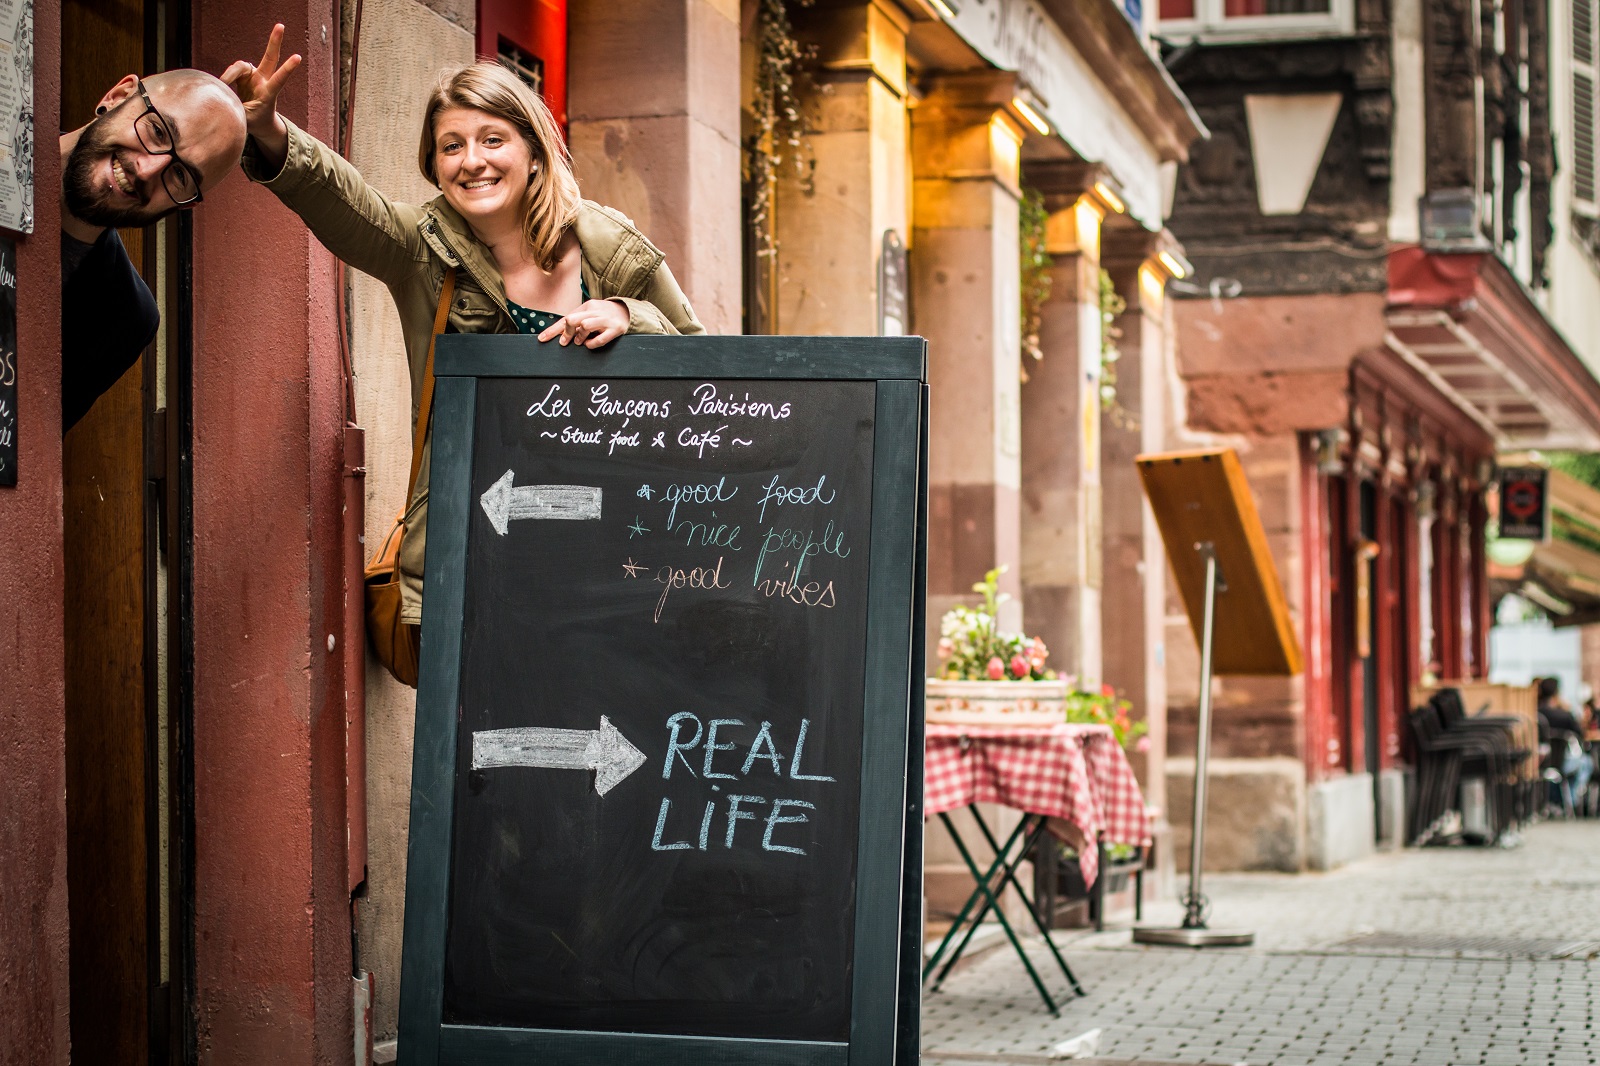 Les Garçons Parisiens
~ Street food & Café ~
* good food
* nice people
* good vibes
REAL
LiFE